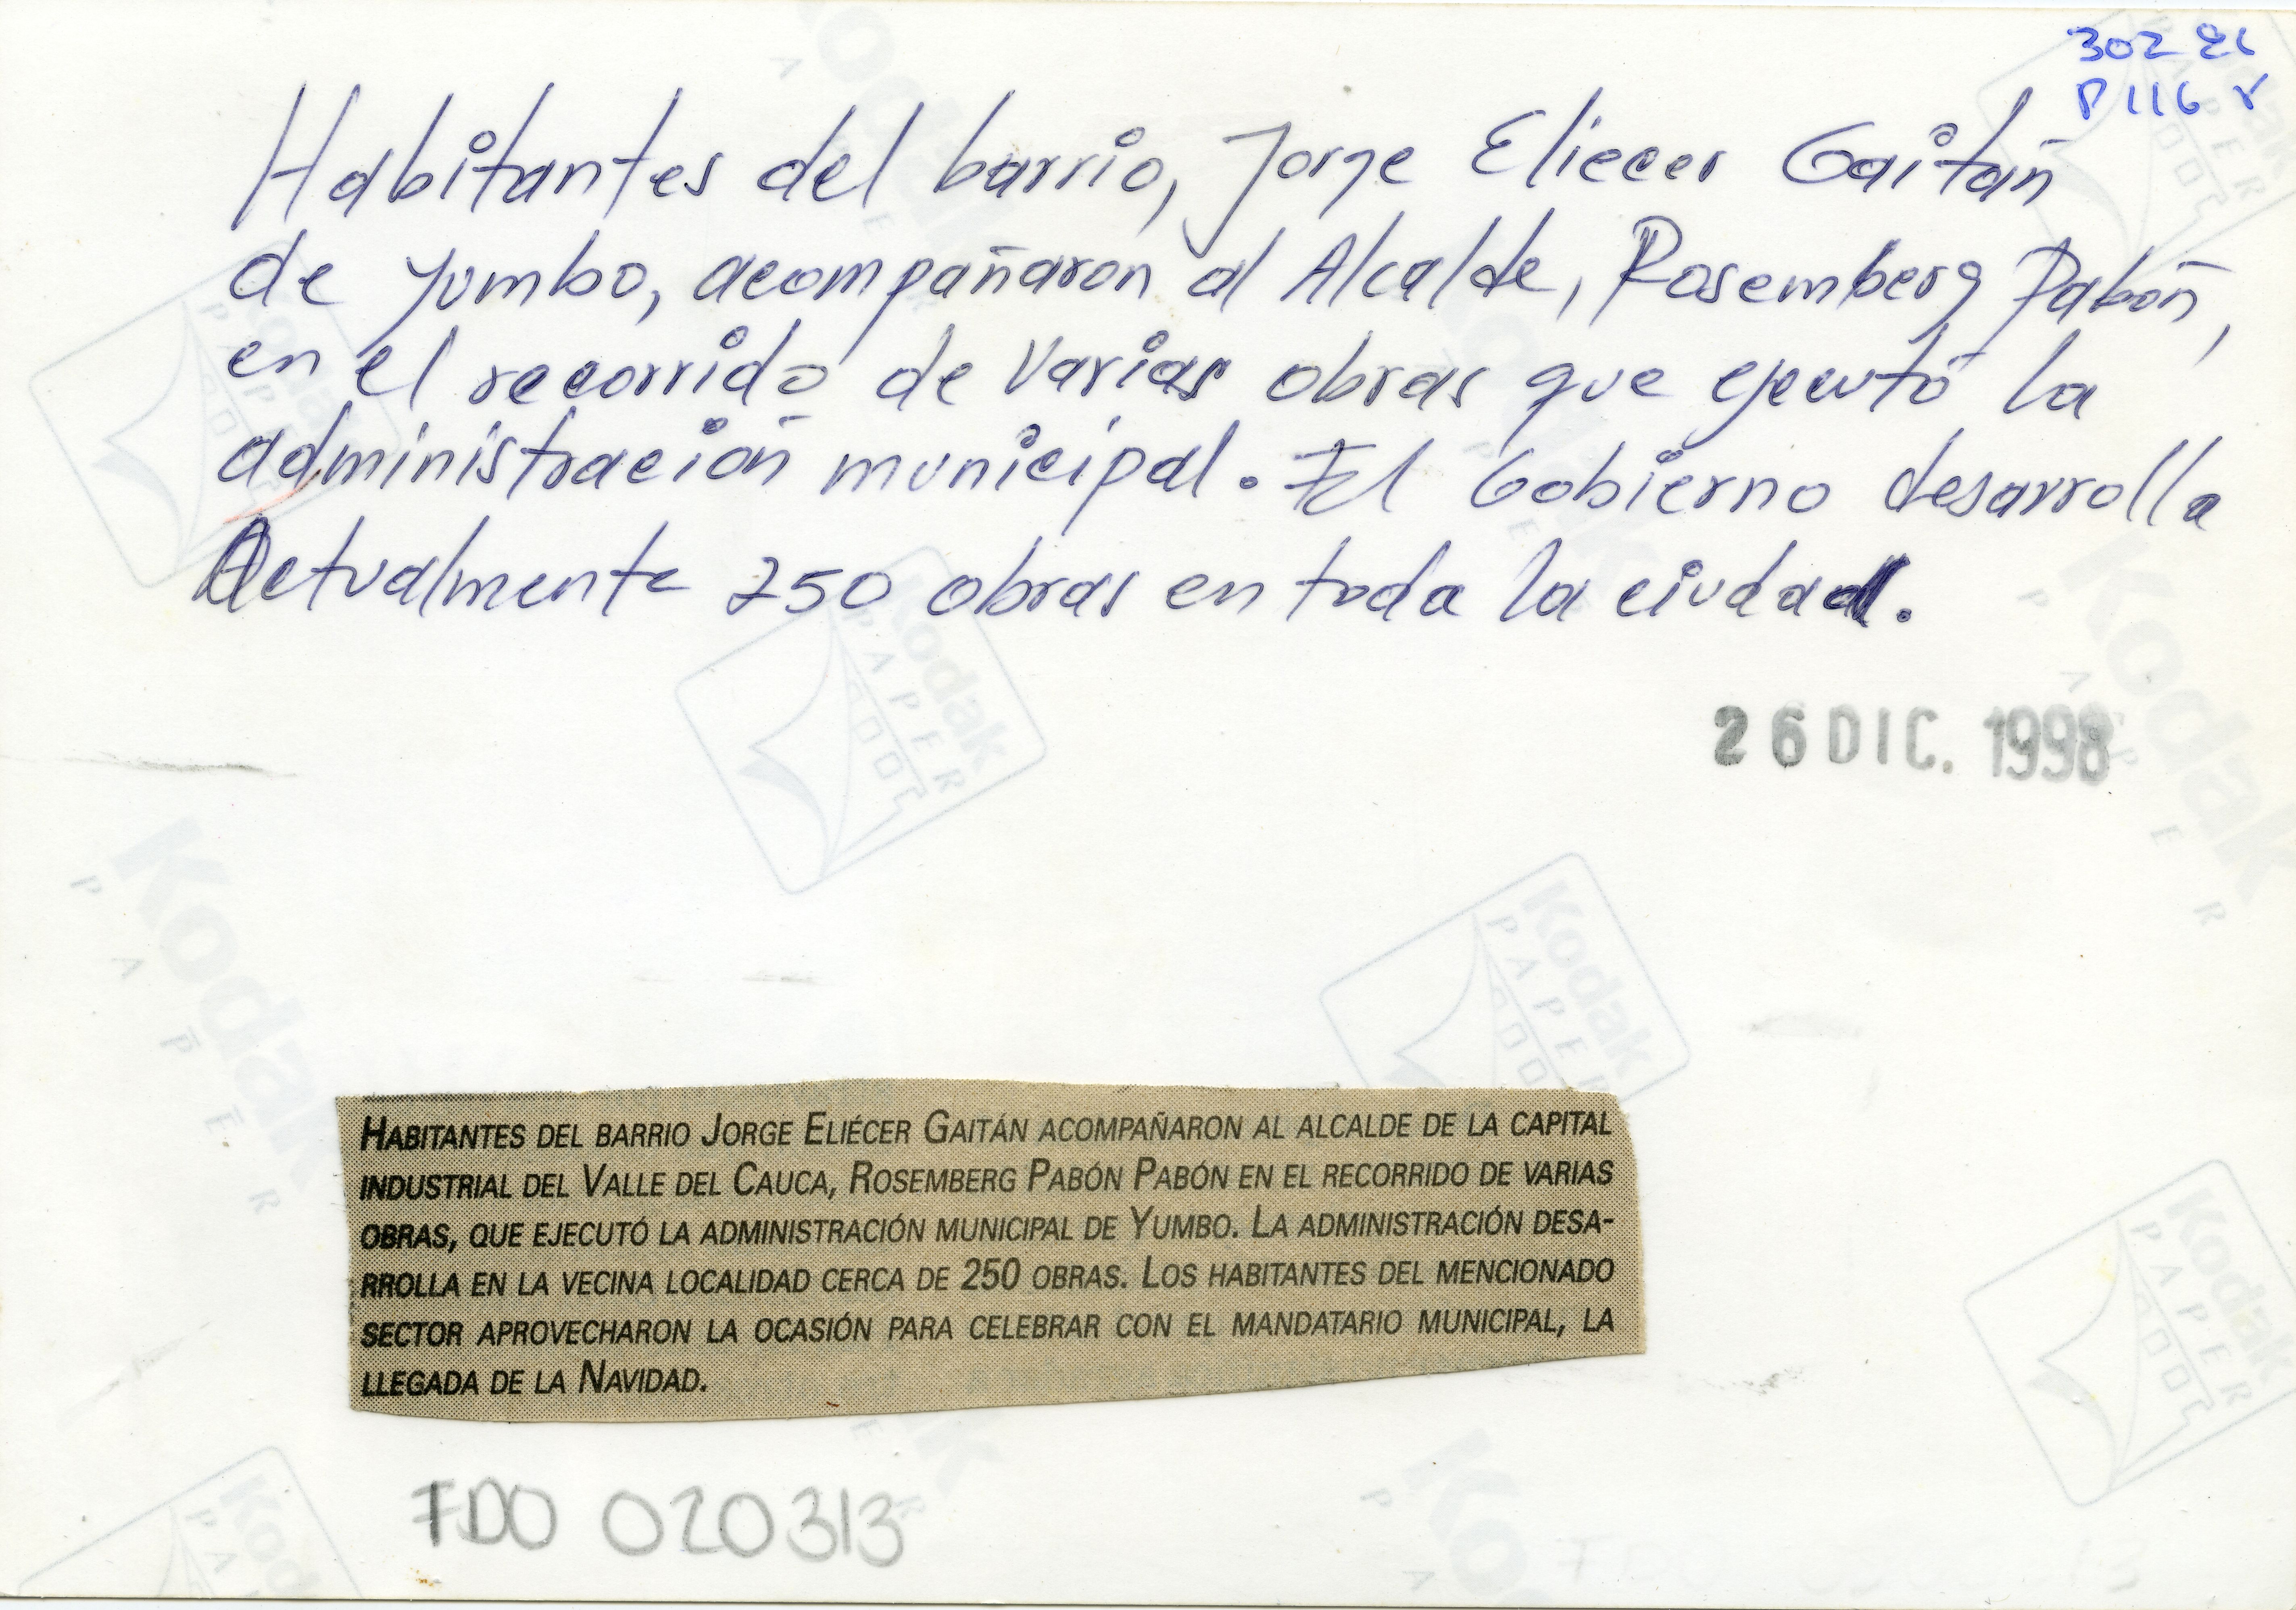 302 26
P 116 V
Habitantes del barrio, Jorge Eliecer Gaitán
de Yumbo, acompañaron al Alcalde, Rosemberg Pabón,
en el recorrido de varias obras que ejecutó la
administración municipal. El Gobierno desarrolla
Actualmente 250 obras en toda la ciudad.
26 DIC. 1998
HABITANTES DEL BARRIO JORGE ELIÉCER GAITÁN ACOMPAÑARON AL ALCALDE DE LA CAPITAL
INDUSTRIAL DEL VALLE DEL CAUCA, ROSEMBERG PABÓN PABÓN EN EL RECORRIDO DE VARIAS
OBRAS, QUE EJECUTÓ LA ADMINISTRACIÓN MUNICIPAL DE YUMBO. LA ADMINISTRACIÓN DESA-
RROLLA EN LA VECINA LOCALIDAD CERCA DE 250 OBRAS. LOS HABITANTES DEL MENCIONADO
SECTOR APROVECHARON LA OCASIÓN PARA CELEBRAR CON EL MANDATARIO MUNICIPAL, LA
LLEGADA DE LA NAVIDAD.
FDO 020313
Kodak
PAPER